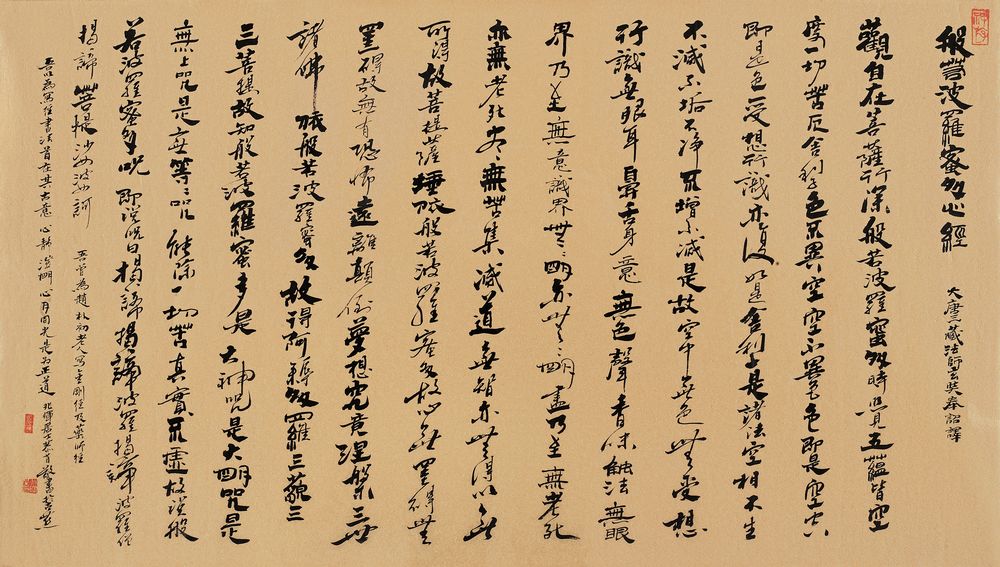 般若波羅蜜多心經 大唐三藏法師玄奘奉詔譯
觀自在菩薩行深般若波羅蜜多時照見五蘊皆空
度一切苦厄舍利子色不異空空不異色色即是空空
即是色受想行識亦復如是舍利子是諸法空相不生
不滅不垢不淨不增不減是故空中無色無受想
行識無眼耳鼻舌身意無色聲香味觸法無眼
界乃至無意識界無無明亦無無明盡乃至無老死
亦無老死盡無苦集滅道無智亦無得以無
所得故菩提薩埵依般若波羅蜜多故心無罣礙無
罣礙故無有恐怖遠離顛倒夢想究竟涅槃三世
諸佛依般若波羅蜜多故得阿耨多羅三藐三
三菩提故知般若波羅蜜多是大神咒是大明咒是
無上咒是無等等咒能除一切苦真實不虛故說般
若波羅蜜多咒即說咒曰揭諦揭諦波羅揭諦波羅僧
揭諦菩提沙婆訶 吾曾為趙朴初老人寫金剛經及藥師經
吾以為寫經書法首在其古意心靜